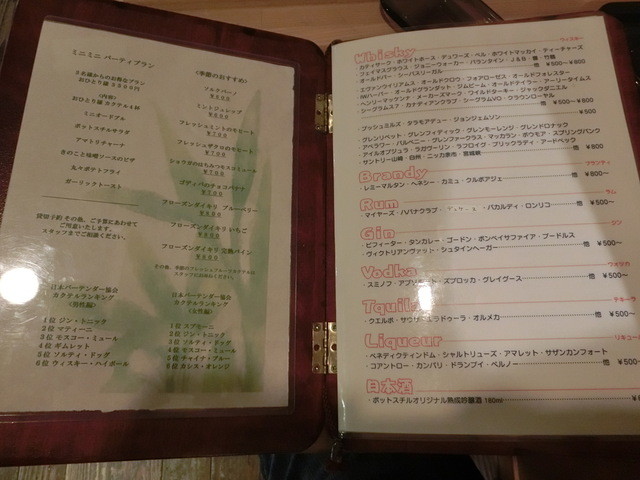 ミニミニ パーティプラン
3名様からのお得なプラン
おひとり様 3800円
(内容)
おひとり様 カクテル4杯
ミニオードブル
ポットスチルサラダ
アマトリチャーナ
きのこと味噌ソースのピザ
丸々ポテトフライ
ガーリックトースト
貸切予約その他、ご予算にあわせて
ご用意いたします。
スタッフまでご相談ください。
日本バーテンダー協会
カクテルランキング
(男性編)
1位 ジン・トニック
2位 マティーニ
3位 モスコー・ミュール
4位 ギムレット
5位 ソルティ・ドッグ
6位 ウィスキー・ハイボール
《季節のおすすめ》
ミントジュレップ
フレッシュミントのモヒート
フレッシュザクロのモヒート
ゴディバのチョコバナナ
フローズンダイキリ ブルーベリー
フローズンダイキリ いちご
フローズンダイキリ 完熟パイン
その他、季節のフレッシュフルーツカクテルは
スタッフにお尋ねください。
日本バーテンダー協会
カクテルランキング
(女性編)
1位 スプモーニ
2位 ジン・トニック
3位 ソルティ・ドッグ
4位 モスコー・ミュール
5位 チャイナ・ブルー
6位 カシス・オレンジ
Whisky
ウィスキー
・カティサーク・ホワイトホース・デュワーズ・ベル・ホワイトマッカイ・ティーチャーズ
・フェイマスグラウス・ジョニーウォーカー・バランタイン・J&B・響・竹鶴
・オールドパー・シーバスリーガル 他 ¥500~¥800
・エヴァンウイリアムス・オールドクロウ・フォアローゼス・オールドフォレスター
・I.W.ハーパー・オールドグランダッド・ジムビーム・オールドテイラー・アーリータイムス
・ヘンリーマッケンナ・メーカーズマーク・ワイルドターキー・ジャックダニエル
・シーグラムS7・カナディアンクラブ・シーグラムVO・クラウンローヤル
他 ¥500~¥800
・ブッシュミルズ・タラモアデュー・ジョンジェムソン ¥500
・グレンリベット・グレンフィディック・グレンモーレンジ・グレンドロナック
・アベラワー・バルベニー・グレンファークラス・マッカラン・ボウモア・スプリングバンク
・アイルオブジュラ・ラガヴーリン・ラフロイグ・ブリックラディ・アードベック
・サントリー山崎・白州・ニッカ余市・宮城峡 他 ¥800
Brandy
ブランディ
・レミーマルタン・ヘネシー・カミュ・クルボアジェ 他 ¥800~
Rum
ラム
・マイヤーズ・ハバナクラブ・ ・バカルディ・ロンリコ 他 ¥500~
Gin
ジン
・ビフィーター・タンカレー・ゴードン・ボンベイサファイア・ブードルス
・ヴィクトリアンヴァット・シュタインヘーガー 他 ¥500~
Vodka
ウォッカ
・スミノフ・アブソルート・ズブロッカ・グレイグース 他 ¥500~
Tquila
テキーラ
・クエルボ・サウザ・エラドゥーラ・オルメカ 他 ¥500~
Liqueur
リキュール
・ベネディクティンドム・シャルトリューズ・アマレット・サザンカンフォート
・コアントロー・カンパリ・ドランブイ・ペルノー 他 ¥500~
日本酒
・ポットスチルオリジナル熟成吟醸酒 180ml